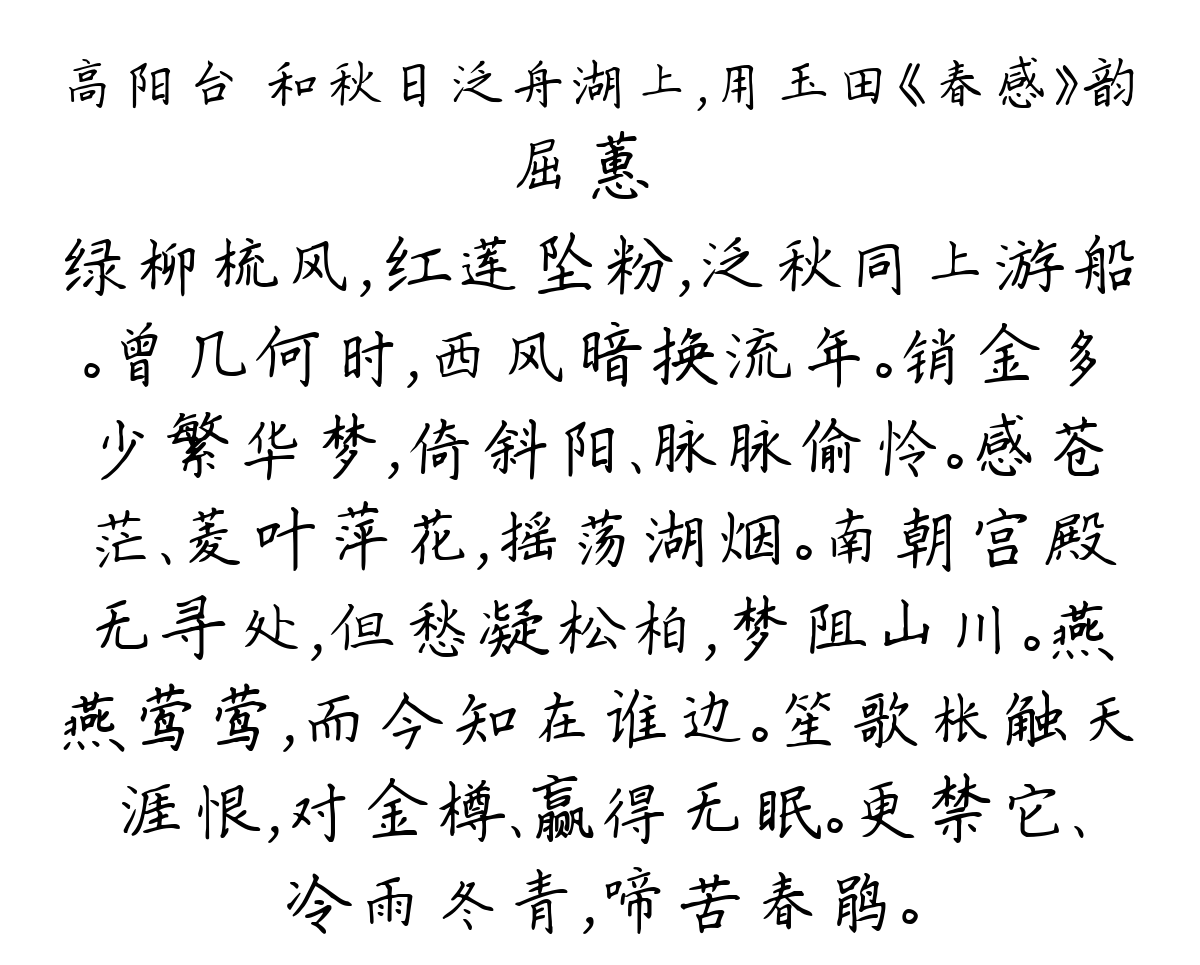 高阳台 和秋日泛舟湖上,用玉田《春感》韵
屈蕙
绿柳梳风,红莲坠粉,泛秋同上游船
。曾几何时,西风暗换流年。销金多
少繁华梦,倚斜阳、脉脉偷怜。感苍
茫、菱叶萍花,摇荡湖烟。南朝宫殿
无寻处,但愁凝松柏,梦阻山川。燕
燕莺莺,而今知在谁边。笙歌枨触天
涯恨,对金樽、赢得无眠。更禁它、
冷雨冬青,啼苦春鹃。